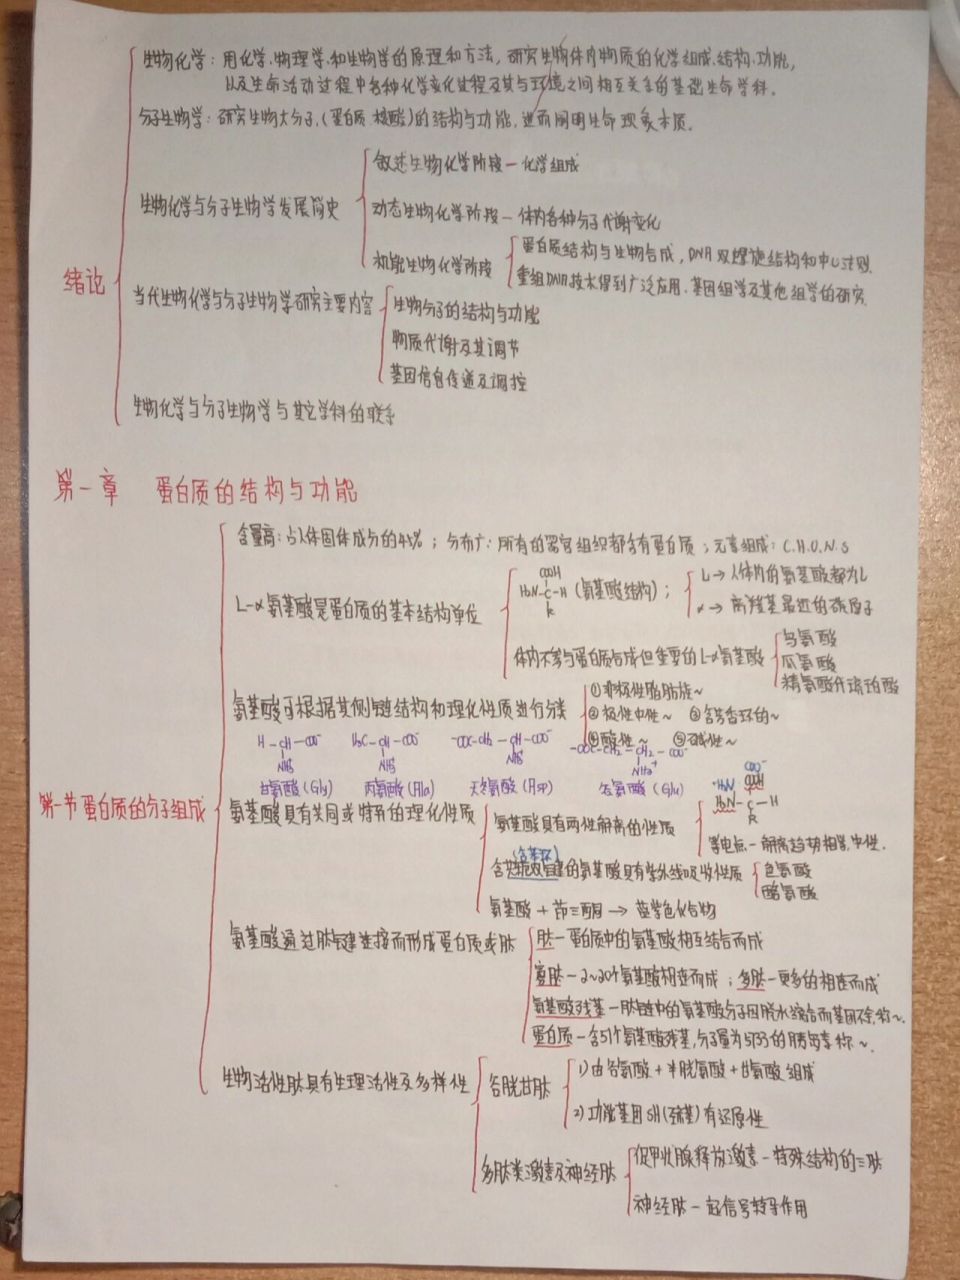 生物化学：用化学.物理学.和生物学的原理和方法，研究生物体内物质的化学组成.结构.功能，
以及生命活动过程中各种化学变化过程及其与环境之间相互关系的基础生命学科。
分子生物学：研究生物大分子.(蛋白质 核酸)的结构与功能，进而阐明生命现象本质。
叙述生物化学阶段－化学组成
生物化学与分子生物学发展简史
动态生物化学阶段－体内各种分子代谢变化
机能生物化学阶段
蛋白质结构与生物合成，DNA双螺旋结构和中心法则.
重组DNA技术得到广泛应用.基因组学及其他组学的研究.
绪论
当代生物化学与分子生物学研究主要内容
生物分子的结构与功能
物质代谢及其调节
基因信息传递及调控
生物化学与分子生物学与其它学科的联系
第一章 蛋白质的结构与功能
含量高：占人体固体成分的45%；分布广：所有的器官组织都含有蛋白质；元素组成：C.H.O.N.S
L-α氨基酸是蛋白质的基本结构单位
COOH
H₂N-C-H (氨基酸结构)；
R
L→人体内的氨基酸都为L
α→离羧基最近的碳原子
体内不参与蛋白质合成但重要的L-α氨基酸
鸟氨酸
瓜氨酸
精氨酸代琥珀酸
氨基酸可根据其侧链结构和理化性质进行分类
①非极性脂肪族~
②极性中性~ ③含芳香环的~
④酸性~ ⑤碱性~
H-CH-COO⁻ H₃C-CH-COO⁻ ⁻OOC-CH₂-CH-COO⁻ ⁻OOC-CH₂-CH₂-COO⁻
NH₃⁺ NH₃⁺ NH₃⁺ NH₃⁺
甘氨酸(Gly) 丙氨酸(Ala) 天冬氨酸(Asp) 谷氨酸(Glu)
第一节蛋白质的分子组成
氨基酸具有共同或特有的理化性质
氨基酸具有两性解离的性质
COO⁻
⁺H₃N COOH
H₂N-C-H
R
等电点－解离趋势相等,中性.
(含苯环)
含共轭双键的氨基酸具有紫外线吸收性质
色氨酸
酪氨酸
氨基酸＋茚三酮→蓝紫色化合物
氨基酸通过肽键连接而形成蛋白质或肽
肽－蛋白质中的氨基酸相互结合而成
寡肽－2~20个氨基酸相连而成；多肽－更多的相连而成
氨基酸残基－肽链中的氨基酸分子因脱水缩合而基团不全,称~.
蛋白质－含51个氨基酸残基,分子量为5733的胰岛素称~.
生物活性肽具有生理活性及多样性
谷胱甘肽
1)由谷氨酸＋半胱氨酸＋甘氨酸组成
2)功能基团SH(巯基)有还原性
多肽类激素及神经肽
促甲状腺释放激素－特殊结构的三肽
神经肽－起信号转导作用